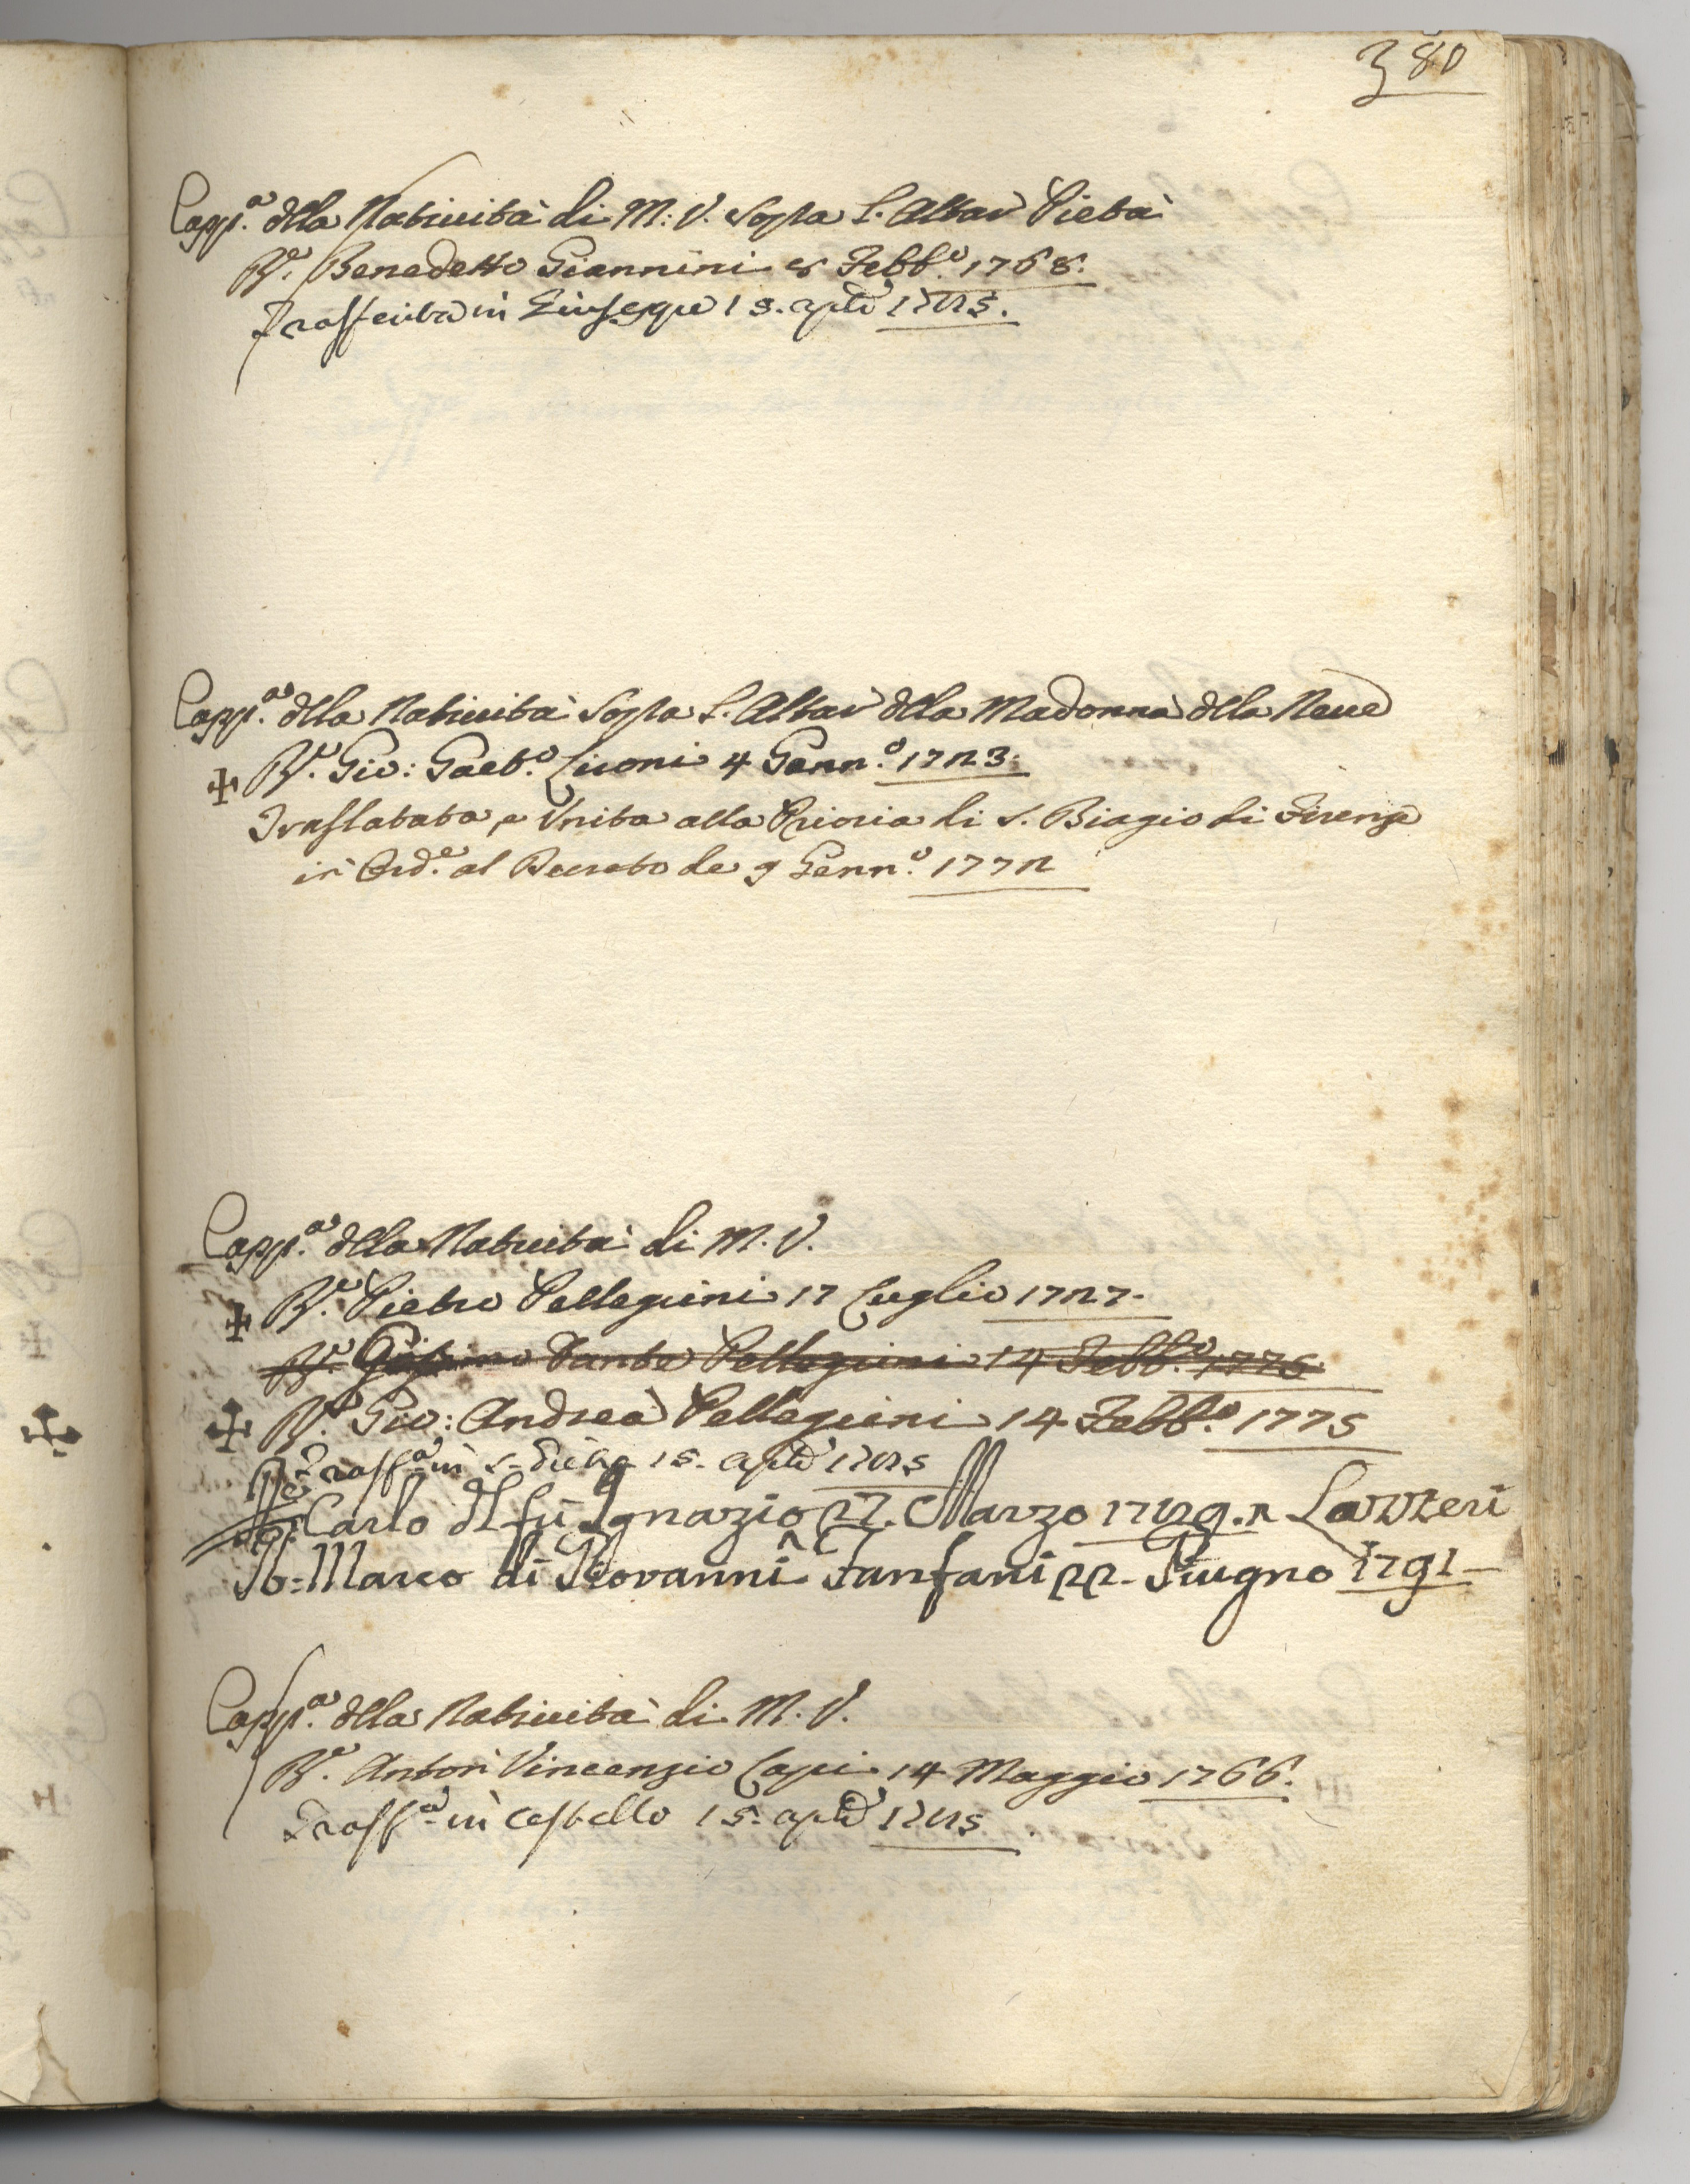 380
Capp.a della Natività di M: V. Sopra l'Altar Pietà
Re. Benedetto Giannini 8 Febb.o 1768.
Trasferita in Giuseppe 15. aple 1785.
Capp.a della Natività Sopra l'Altar della Madonna della Neve
Re. Gio: Gaet.o Ciconi 4 Genn.o 1723.
Traslatata, e Unita alla Prioria di S. Biagio di Firenze
in Ord.e al Decreto de 9 Genn.o 1772
Capp.a della Natività di M. V.
Re. Pietro Pellegrini 17 Luglio 1727.
Re. Dante Pellegrini 14 Febb.o 1775
Re. Gio: Andrea Pellegrini 14 Febb.o 1775
Trasf.a in S. 15. aple 1785
Re Carlo del fù Ignazio 27. Marzo 1789. Lavreri
Re: Marco di Giovanni Fanfani 22. Giugno 1791
Capp.a della Natività di M. V.
Re. Anton Vincenzio Capi 14 Maggio 1766.
Trasf.a in Cestello 15. aple 1785